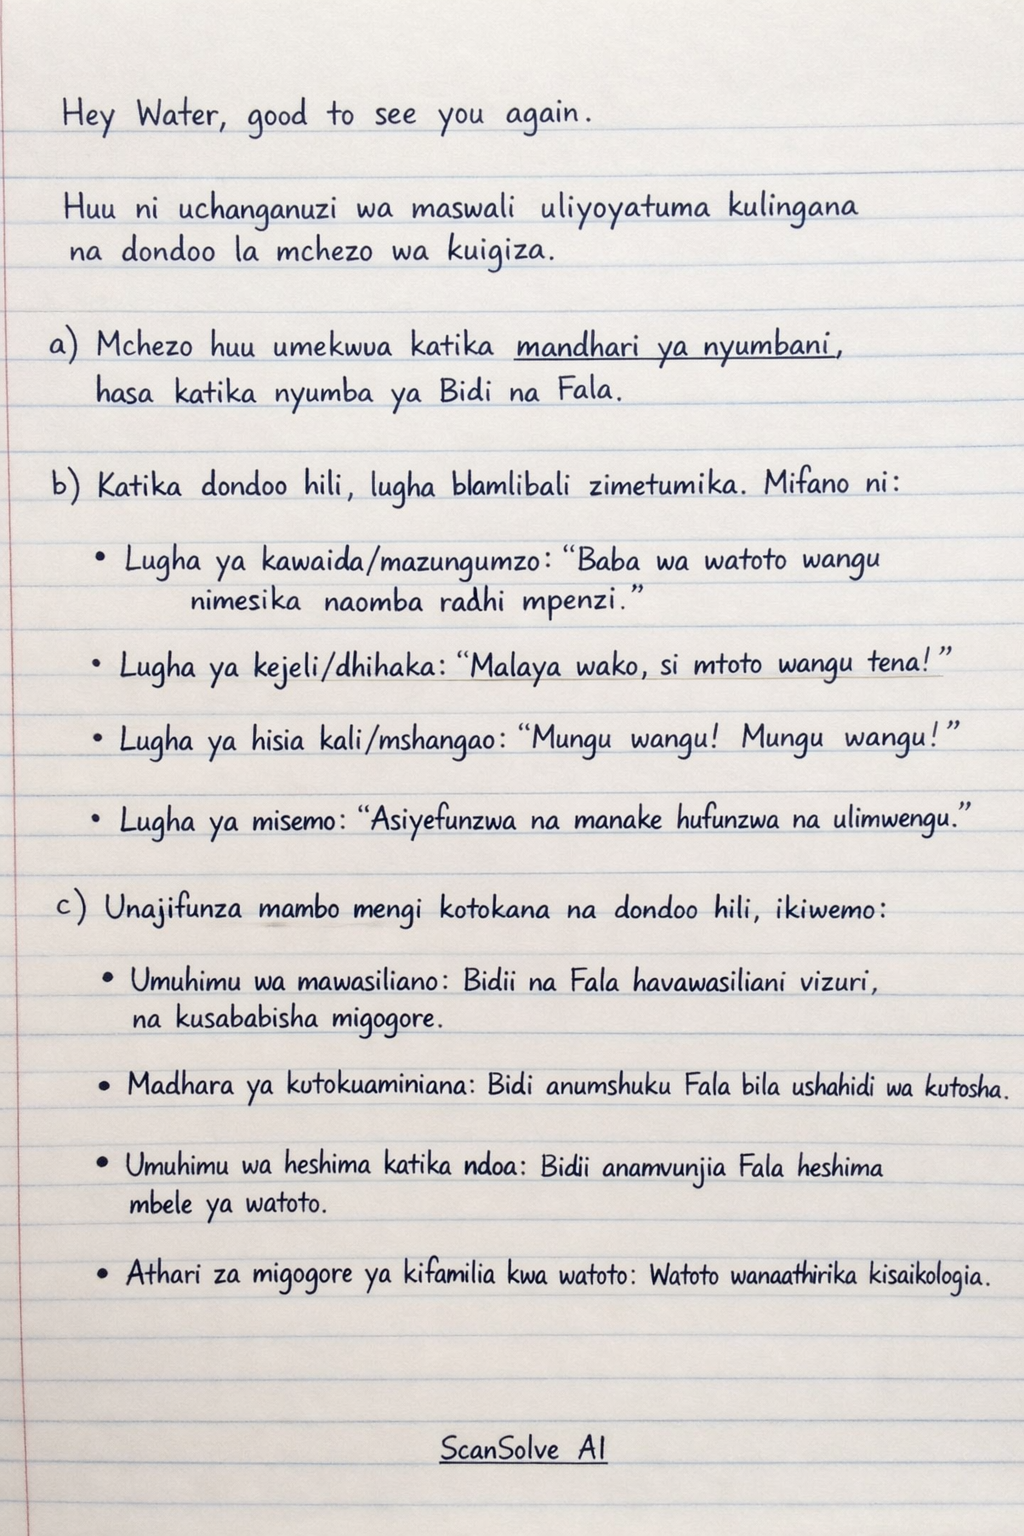 Hey Water, good to see you again.
Huu ni uchanganuzi wa maswali uliyoyatuma kulingana
na dondoo la mchezo wa kuigiza.
a) Mchezo huu umekwua katika mandhari ya nyumbani,
hasa katika nyumba ya Bidi na Fala.
b) Katika dondoo hili, lugha blamlibali zimetumika. Mifano ni:
• Lugha ya kawaida/mazungumzo: “Baba wa watoto wangu
nimesika naomba radhi mpenzi.”
• Lugha ya kejeli/dhihaka: “Malaya wako, si mtoto wangu tena!”
• Lugha ya hisia kali/mshangao: “Mungu wangu! Mungu wangu!”
• Lugha ya misemo: “Asiyefunzwa na manake hufunzwa na ulimwengu.”
c) Unajifunza mambo mengi kotokana na dondoo hili, ikiwemo:
• Umuhimu wa mawasiliano: Bidii na Fala havawasiliani vizuri,
na kusababisha migogore.
• Madhara ya kutokuaminiana: Bidi anumshuku Fala bila ushahidi wa kutosha.
• Umuhimu wa heshima katika ndoa: Bidii anamvunjia Fala heshima
mbele ya watoto.
• Athari za migogore ya kifamilia kwa watoto: Watoto wanaathirika kisaikologia.
ScanSolve AI